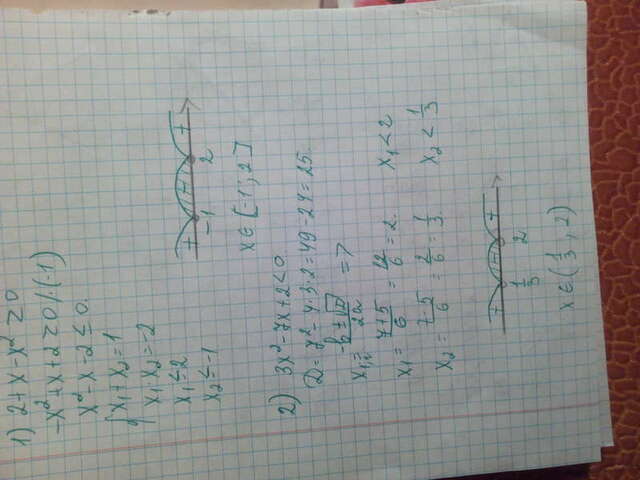 1) 2+x-x² ≥ 0
-x²+x+2 ≥ 0 /·(-1)
x²-x-2 ≤ 0.
{ x₁+x₂=1
x₁·x₂=-2
x₁ ≤ 2
x₂ ≤ -1
+ - +
-1 2
x ∈ [-1; 2]
2) 3x²-7x+2<0
D = 7²-4·3·2=49-24=25.
x₁,₂ = -b±√D/2a =>
x₁ = 7+5/6 = 12/6 = 2. x₁ < 2
x₂ = 7-5/6 = 2/6 = 1/3. x₂ < 1/3
+ - +
1/3 2
x ∈ (1/3; 2)